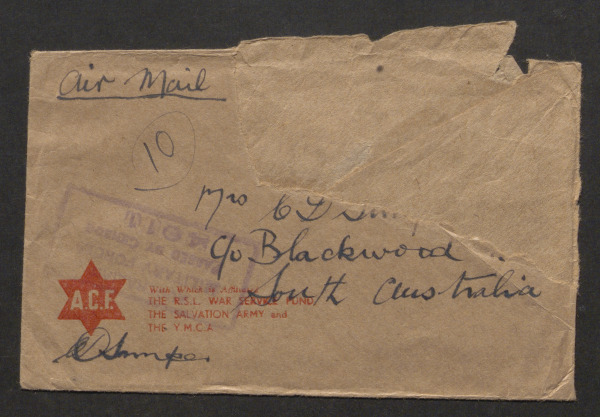 Air Mail
10
Mrs C D
c/o Blackwood
South Australia
PASSED BY CENSOR
A.C.F.
With Which is Affiliated
THE R.S.L. WAR SERVICE FUND,
THE SALVATION ARMY and
THE Y M.C.A.